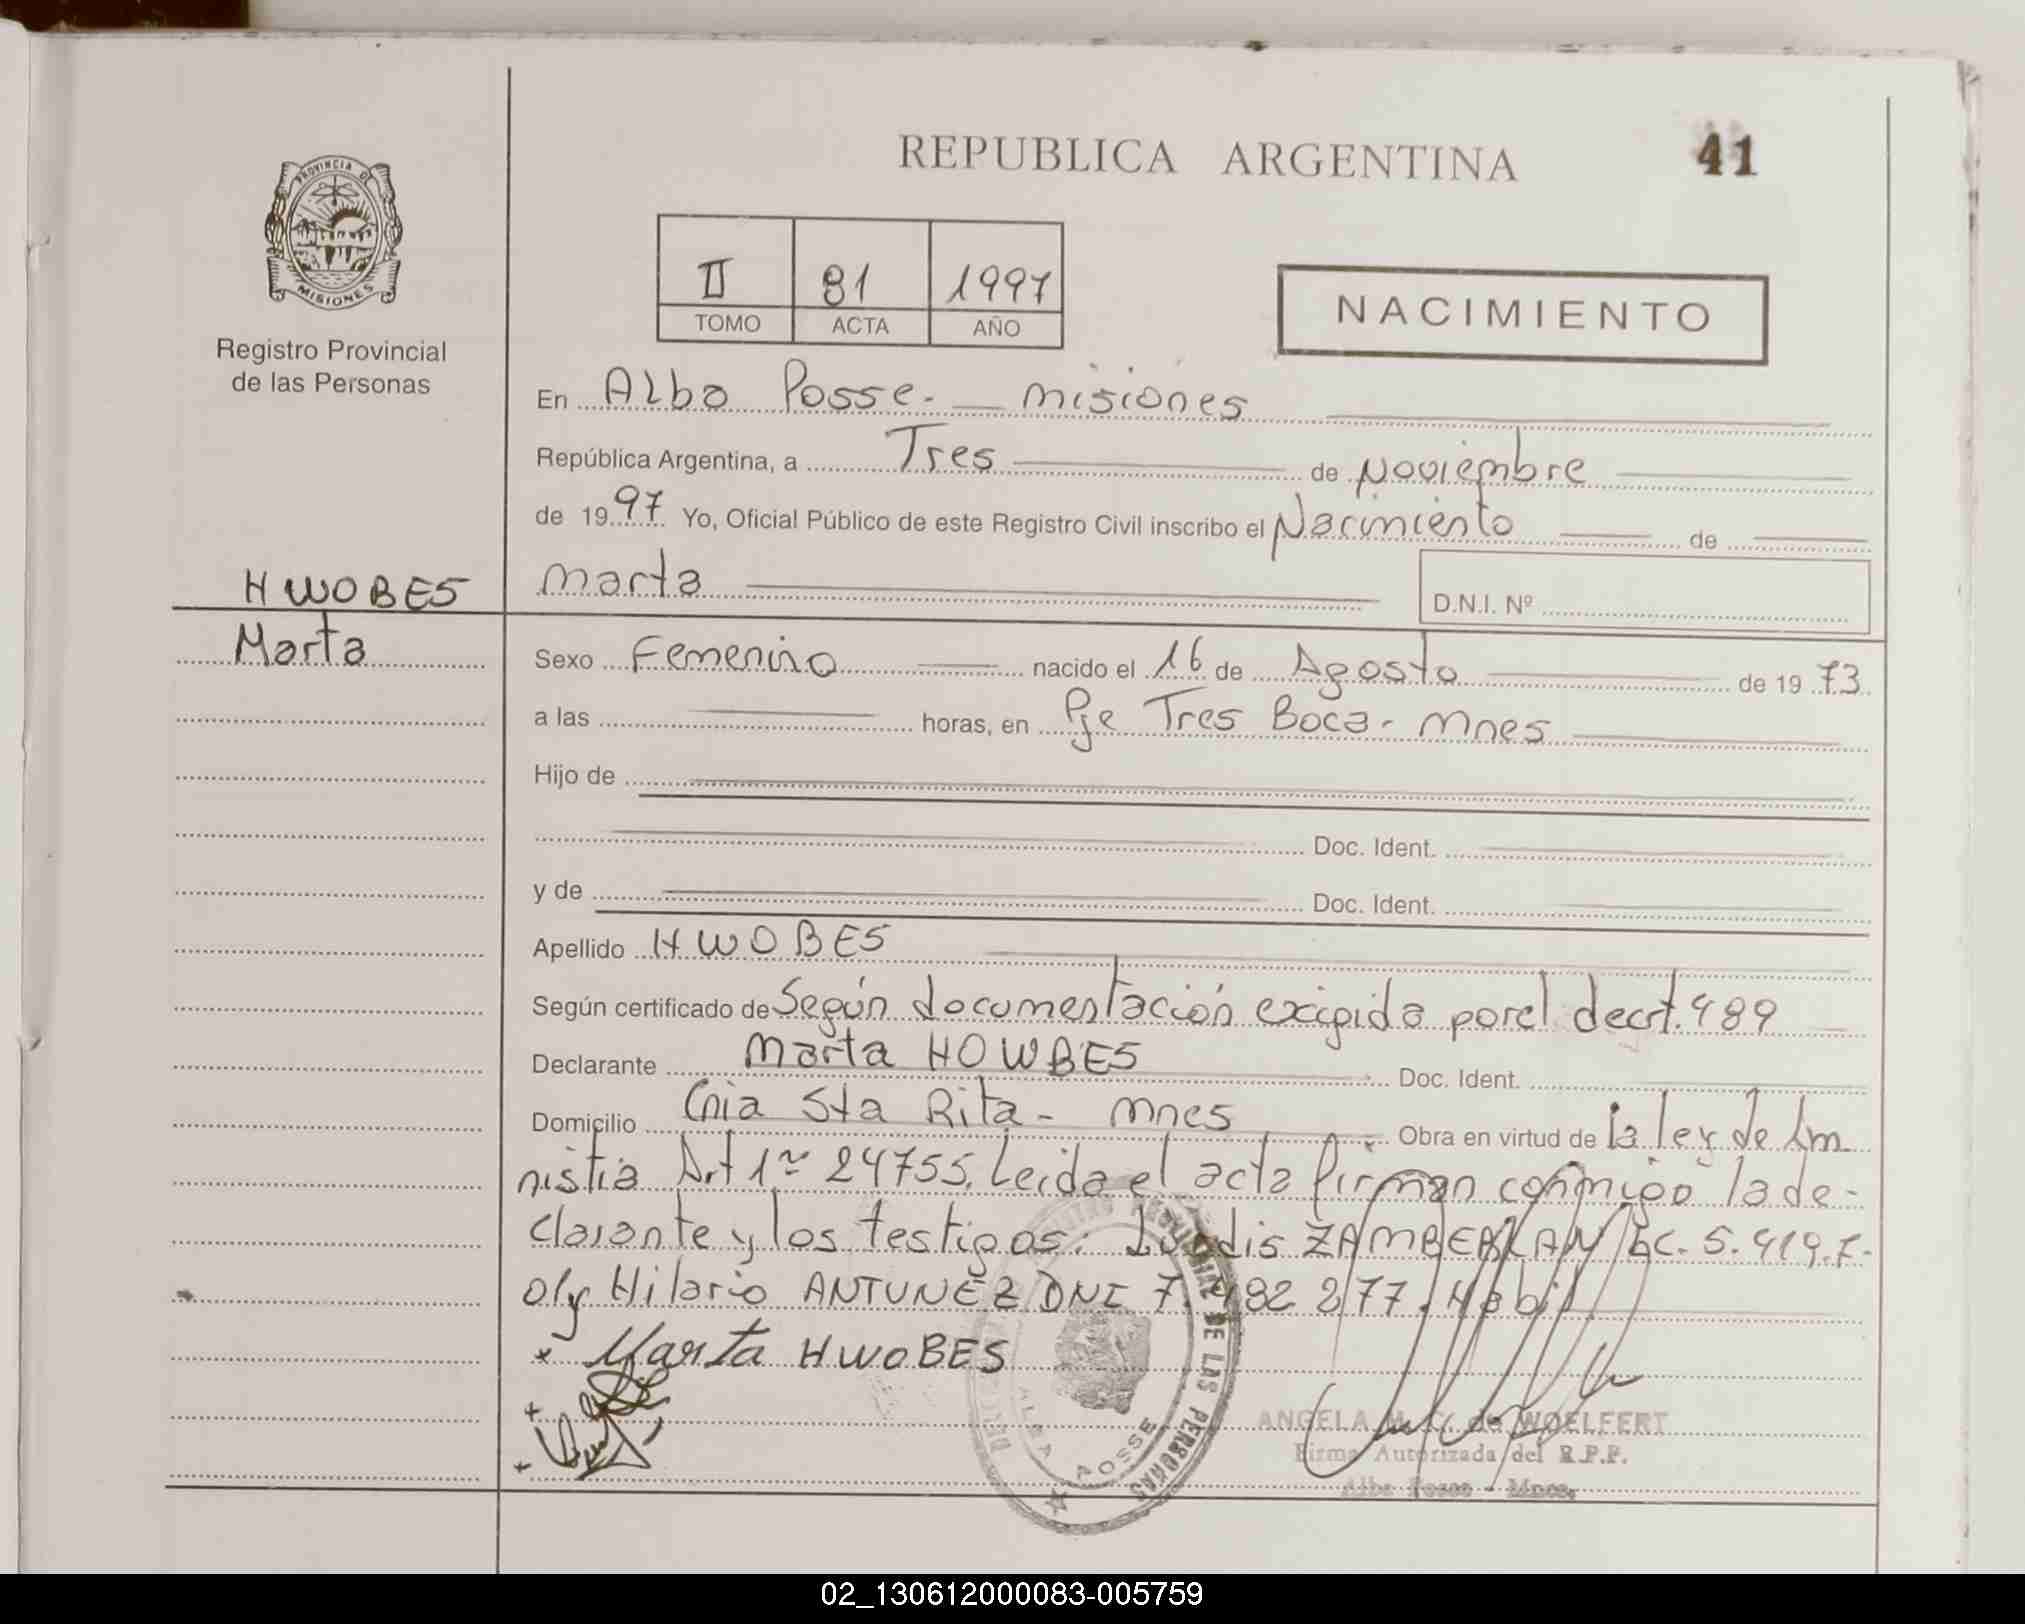 REPUBLICA ARGENTINA
41
PROVINCIA DE
MISIONES
Registro Provincial
de las Personas
II 81 1997
TOMO ACTA AÑO
NACIMIENTO
En Alba Posse - Misiones
República Argentina, a Tres de Noviembre
de 1997 Yo, Oficial Público de este Registro Civil inscribo el Nacimiento de
HWOBES
Marta
Marta
D.N.I. Nº
Sexo Femenino nacido el 16 de Agosto de 1973
a las horas, en Pje Tres Boca - Mnes
Hijo de
Doc. Ident.
y de Doc. Ident.
Apellido HWOBES
Según certificado de Según documentación exigida por el decrt. 489
Declarante Marta HOWBES Doc. Ident.
Domicilio Cnia Sta Rita - Mnes Obra en virtud de la ley de Am
nistia Art 1º 24755. Leida el acta firman conmigo la de-
clarante y los testigos: ZAMBERLAN LC. 5.419.7-
01 y Hilario ANTUNEZ DNI 7.482 277. Habil
x Marta HWOBES
+
+
REGISTRO PROVINCIAL DE LAS PERSONAS
ALBA POSSE
ANGELA M. de WOELFERT
Firma Autorizada del R.P.P.
Alba Posse - Mnes.
02_130612000083-005759